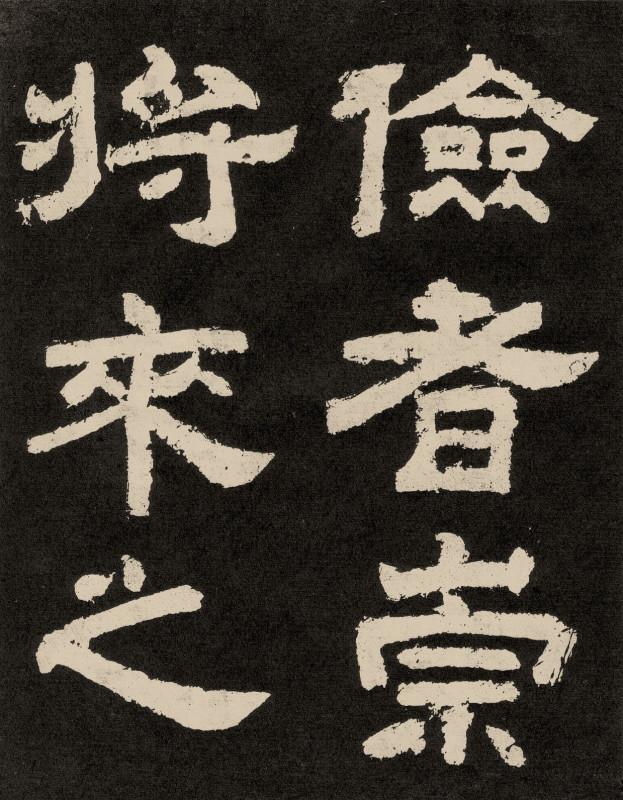 儉者崇
將來之